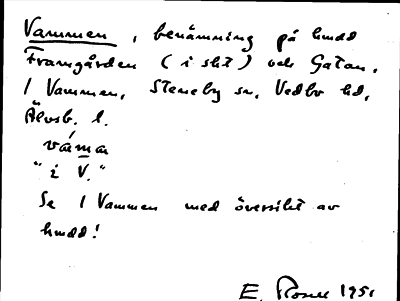 Vammen, benämning på hmdd
Framgården (i skt) och Gatan,
1 Vammen, Steneby sn, Vedbo hd,
Älvsb. l.
"i V."
Se 1 Vammen med översikt av
hmdd!
E. Rosell 1951